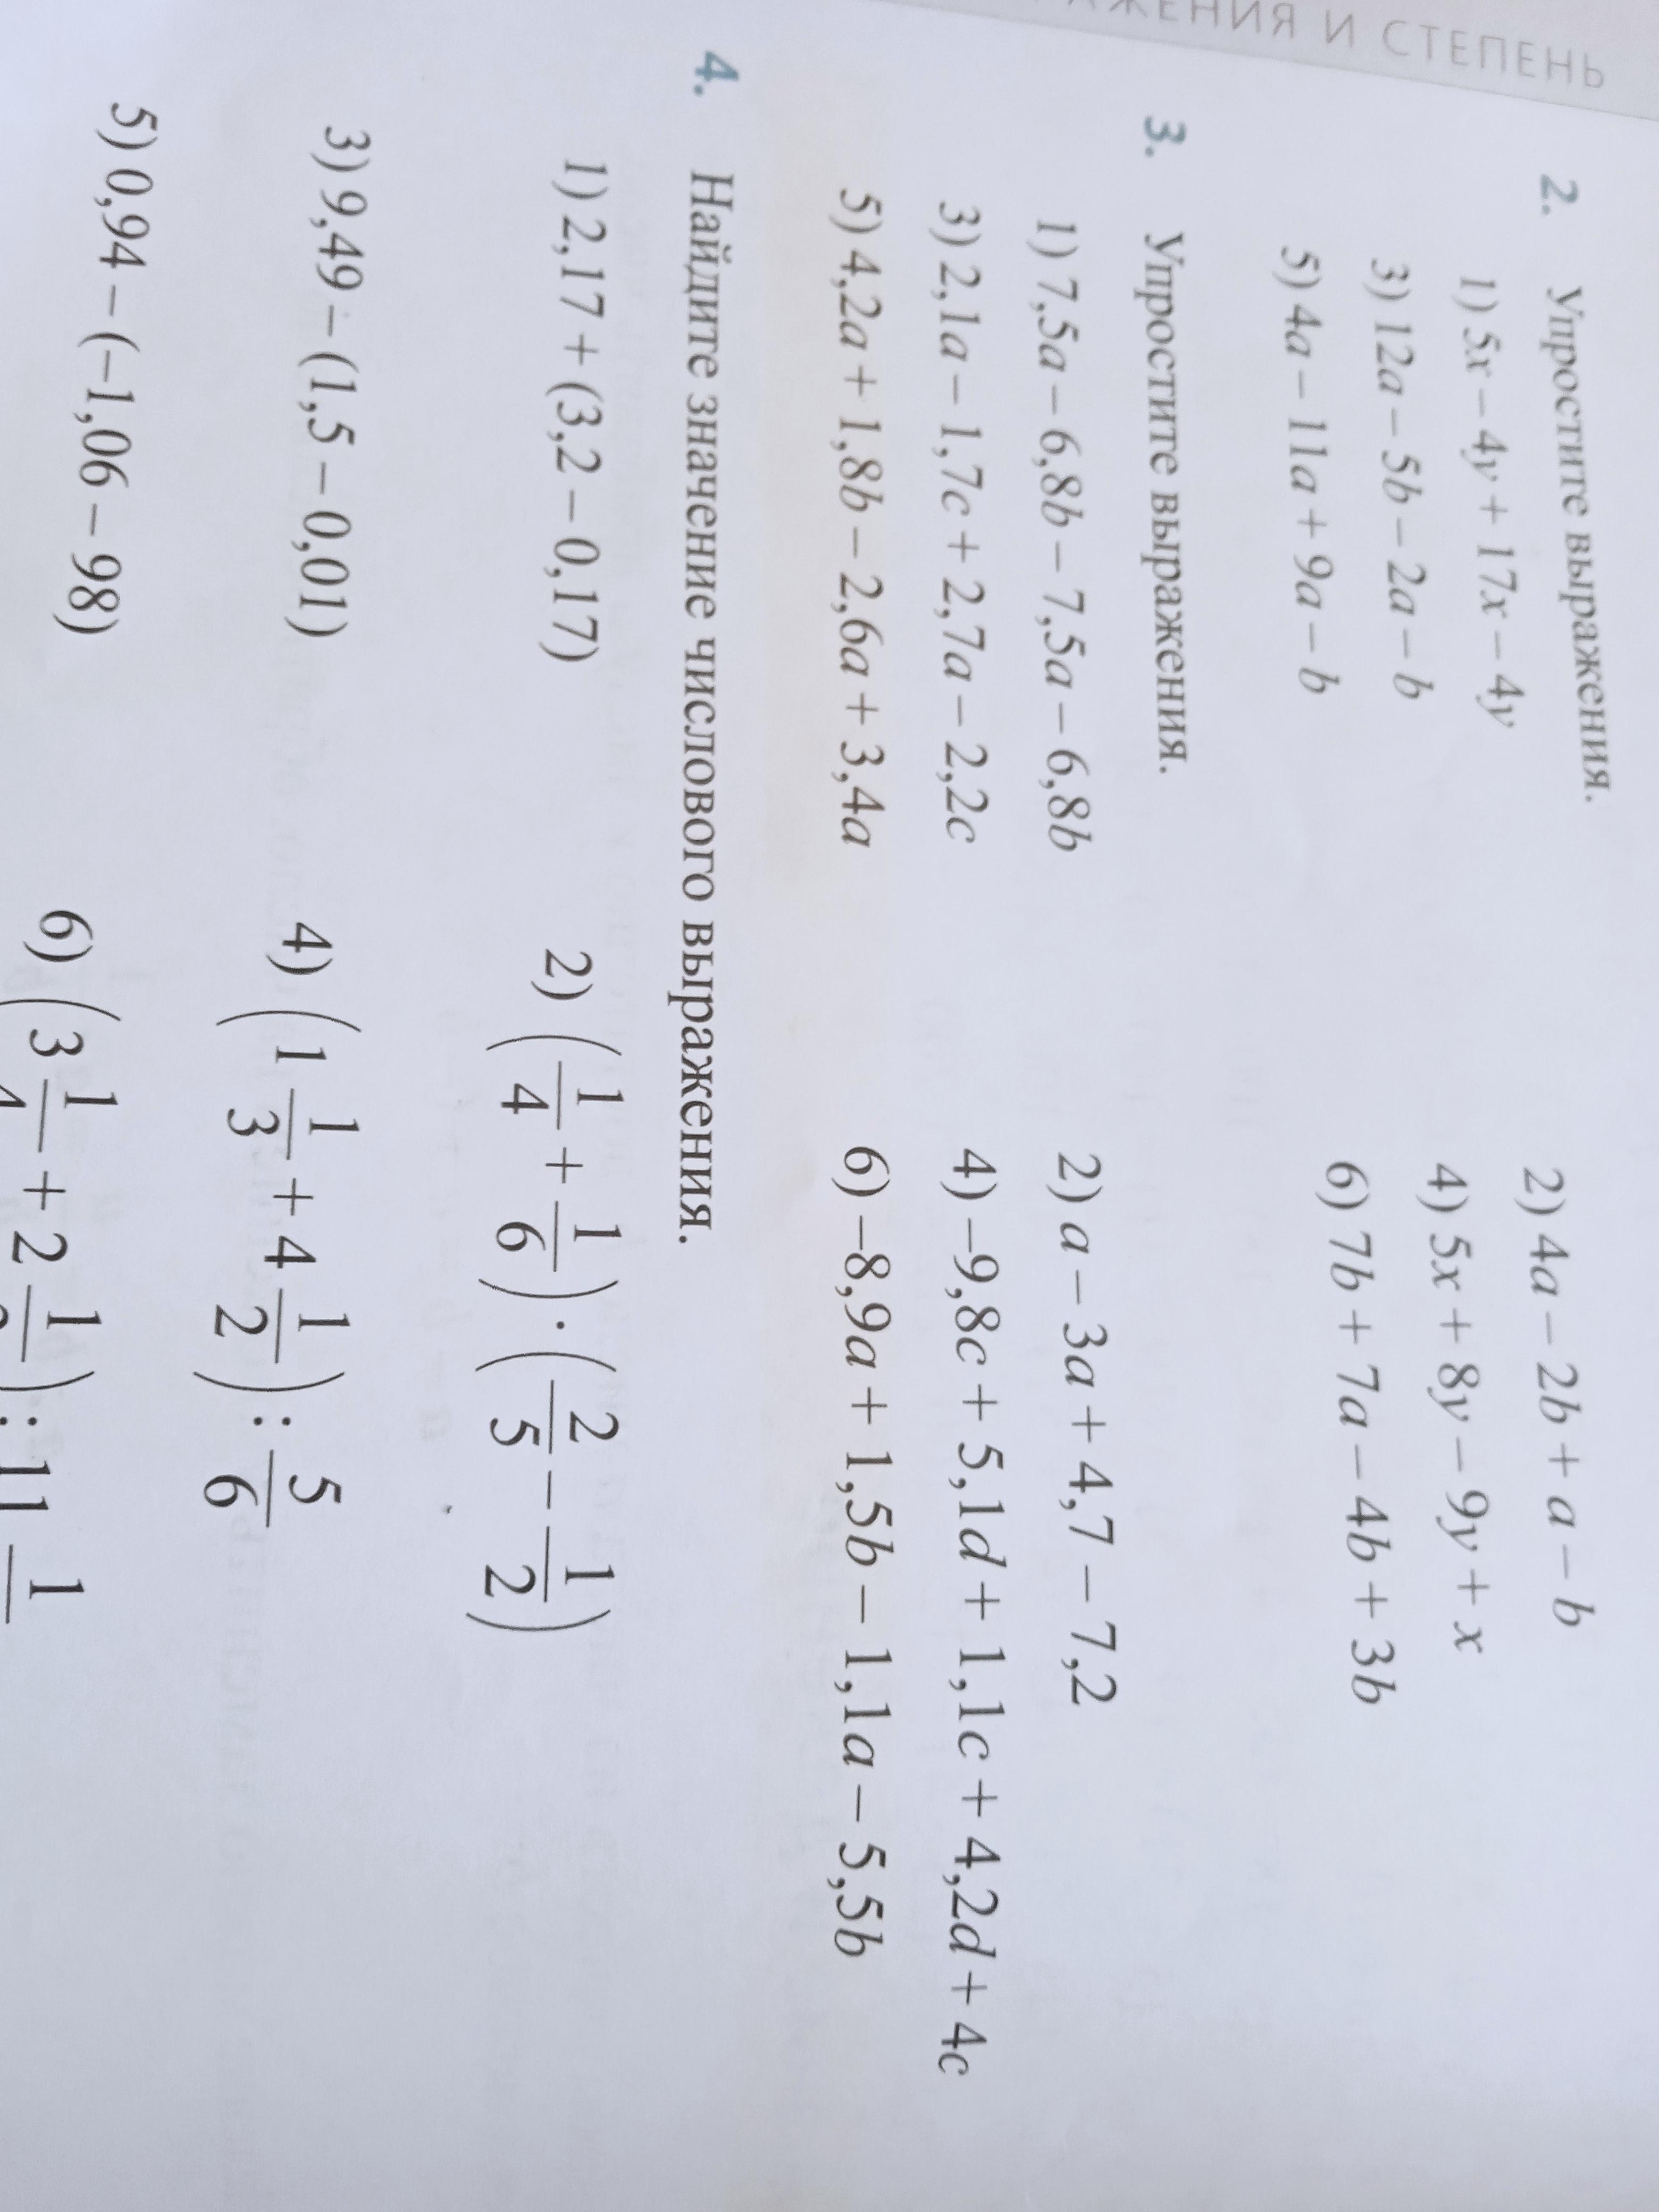 ЖЕНИЯ И СТЕПЕНЬ
2. Упростите выражения.
1) 5x – 4y + 17x – 4y 2) 4a – 2b + a – b
3) 12a – 5b – 2a – b 4) 5x + 8y – 9y + x
5) 4a – 11a + 9a – b 6) 7b + 7a – 4b + 3b
3. Упростите выражения.
1) 7,5a – 6,8b – 7,5a – 6,8b 2) a – 3a + 4,7 – 7,2
3) 2,1a – 1,7c + 2,7a – 2,2c 4) –9,8c + 5,1d + 1,1c + 4,2d + 4c
5) 4,2a + 1,8b – 2,6a + 3,4a 6) –8,9a + 1,5b – 1,1a – 5,5b
4. Найдите значение числового выражения.
1) 2,17 + (3,2 – 0,17) 2) (1/4 + 1/6) · (2/5 – 1/2)
3) 9,49 – (1,5 – 0,01) 4) (1 1/3 + 4 1/2) : 5/6
5) 0,94 – (–1,06 – 98) 6) (3 1/4 + 2 1/) : 11 1/